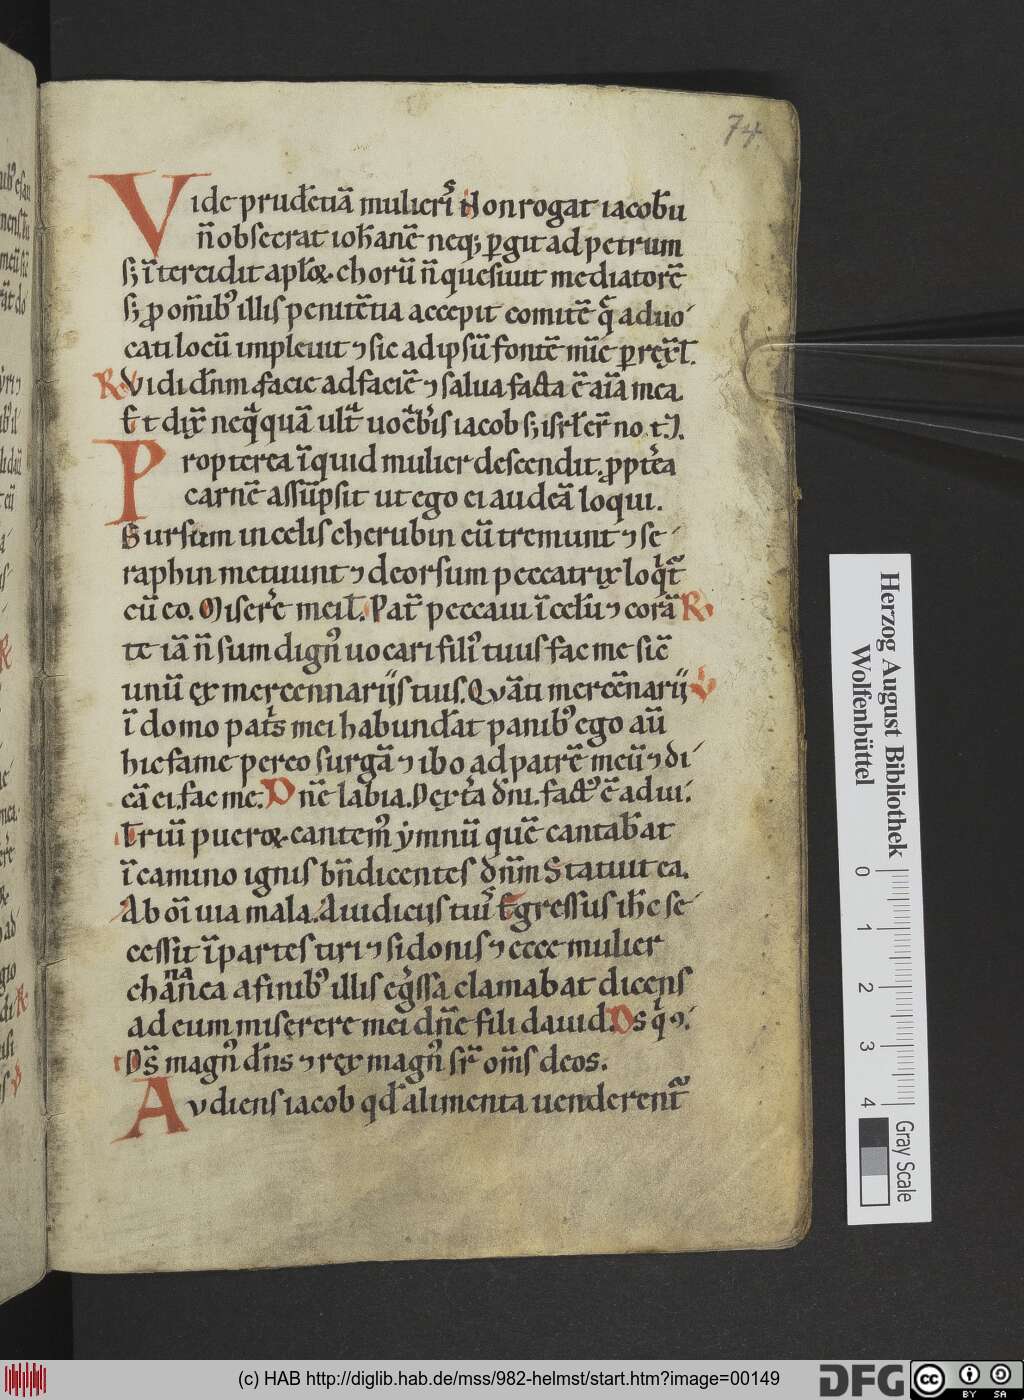 74.
Vide prudẽtiã mulieris Non rogat iacobũ
ñ obsecrat ioħanẽ neq; ꝑgit ad petrum
ſꝫ ĩtercidit apl̃oꝝ chorũ ñ quesiuit mediatorẽ
ſꝫ ꝓ om̃ibꝰ illis penitẽtia accepit comitẽ q̃ aduo
cati locũ impleuit ⁊ sic ad ipsũ fontẽ mũc ꝑrexit.
R. Vidi dñm facie ad faciẽ ⁊ salua facta ẽ aĩa mea.
Et dix̃ neq̃quã ult̃ uocẽbis iacob ſꝫ isrl̃ er̃ no. t.
Propterea ĩquid mulier descendit. ꝓpterea
carnẽ assũpsit ut ego ei audeã loqui.
Sursum in celis cherubin cũ tremunt ⁊ se
raphin metuunt ⁊ deorsum peccatrix loq̃t
cũ eo. Miserẽ mei. Pat̃ peccaui ĩ celũ ⁊ corã R.
te iã ñ sum dignꝰ uocari filiꝰ tuus fac me sic̃
unũ ex mercennarijs tuis. Quãti mercẽnarij V
ĩ domo pat̃s mei habundãt panibꝰ ego aũ
hic fame pereo surgã ⁊ ibo ad patrẽ meũ ⁊ di
cã ei. fac me. Dñe labia. Dextera dñi. factꝰ ẽ adiui.
Triũ pueroꝝ cantemꝰ ymnũ quẽ cantabãt
ĩ camino ignis bñdicentes dñm Statuit ea.
Ab oĩ uia mala. Auidicijs tuis Egressus ihc se
cessit ĩ partes tiri ⁊ sidonis ⁊ ecce mulier
chananea a finibꝰ illis egressa clamabat dicens
ad eum miserere mei dñe fili dauid. Ds q̃ ⁊.
Ds̃ magnꝰ dñs ⁊ rex magnꝰ sr̃ om̃s deos.
Audiens iacob qd̃ alimenta uenderent
Herzog August Bibliothek
Wolfenbüttel
0 1 2 3 4
Gray Scale
(c) HAB http://diglib.hab.de/mss/982-helmst/start.htm?image=00149
DFG
cc BY SA